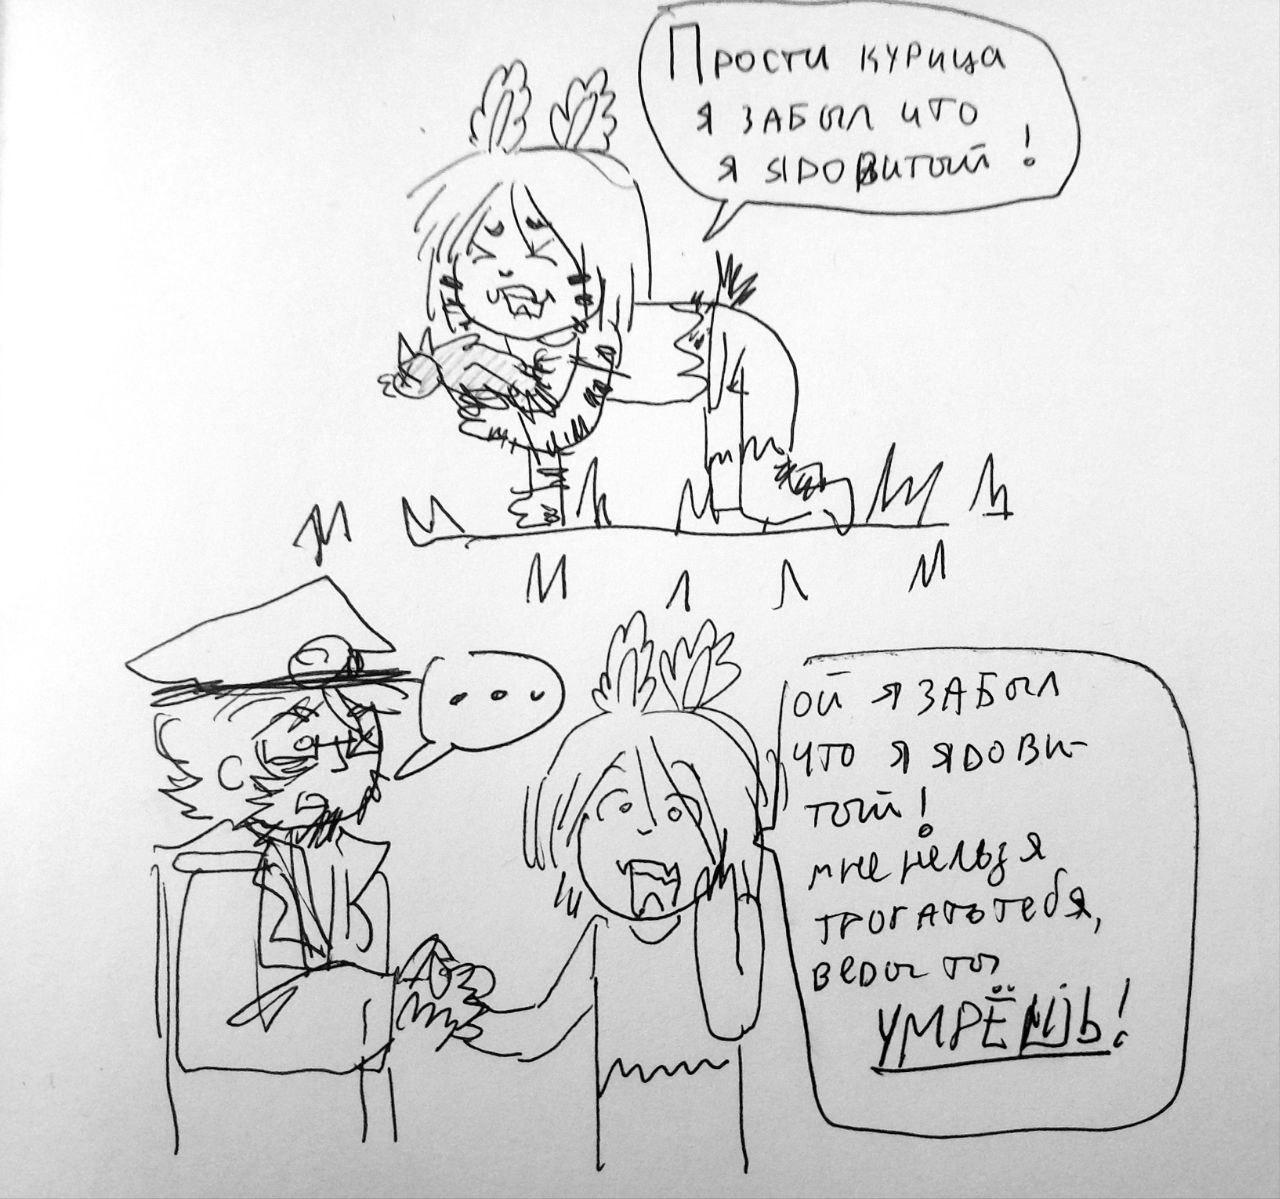 Прости курица
я забыл что
я ядовитый!
...
ой я забыл
что я ядови-
тый!
мне нельзя
трогать тебя,
ведь ты
УМРЁШЬ!